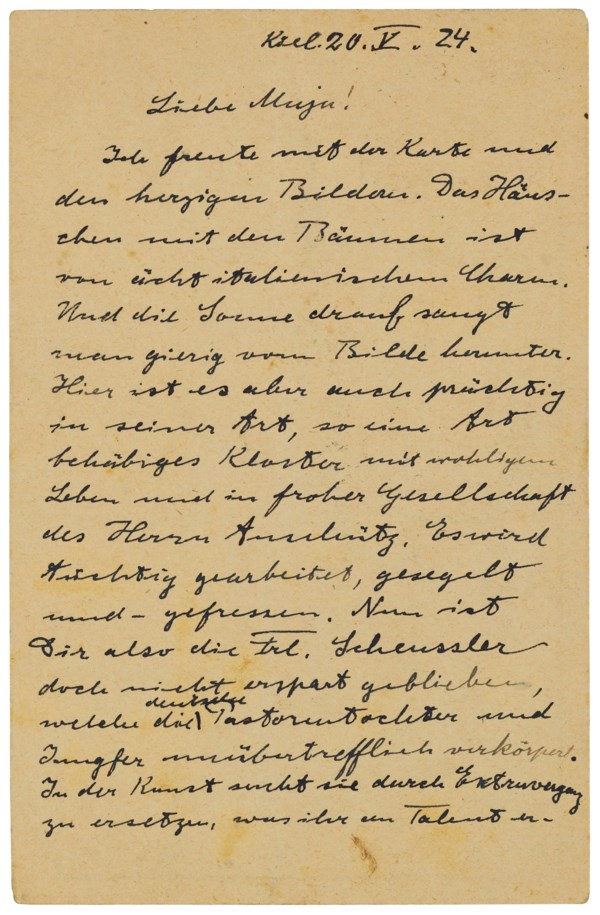 Kiel. 20. V. 24.
Liebe Maja!
Ich freute mit der Karte und
den herzigen Bildern. Das Häus-
chen mit den Bäumen ist
von ächt italienischem Charm.
Und die Sonne drauf saugt
man gierig vom Bilde herunter.
Hier ist es aber auch prächtig
in seiner Art, so eine Art
behäbiges Kloster mit wohligem
Leben und in froher Gesellschaft
des Herrn Anschütz. Es wird
tüchtig gearbeitet, gesegelt
und - gefressen. Nun ist
Dir also die Frl. Scheussler
doch nicht erspart geblieben,
welche die deutsche Pastorentochter und
Jungfer unübertrefflich verkörpert.
In der Kunst sucht sie durch Extravaganz
zu ersetzen, was ihr an Talent er-